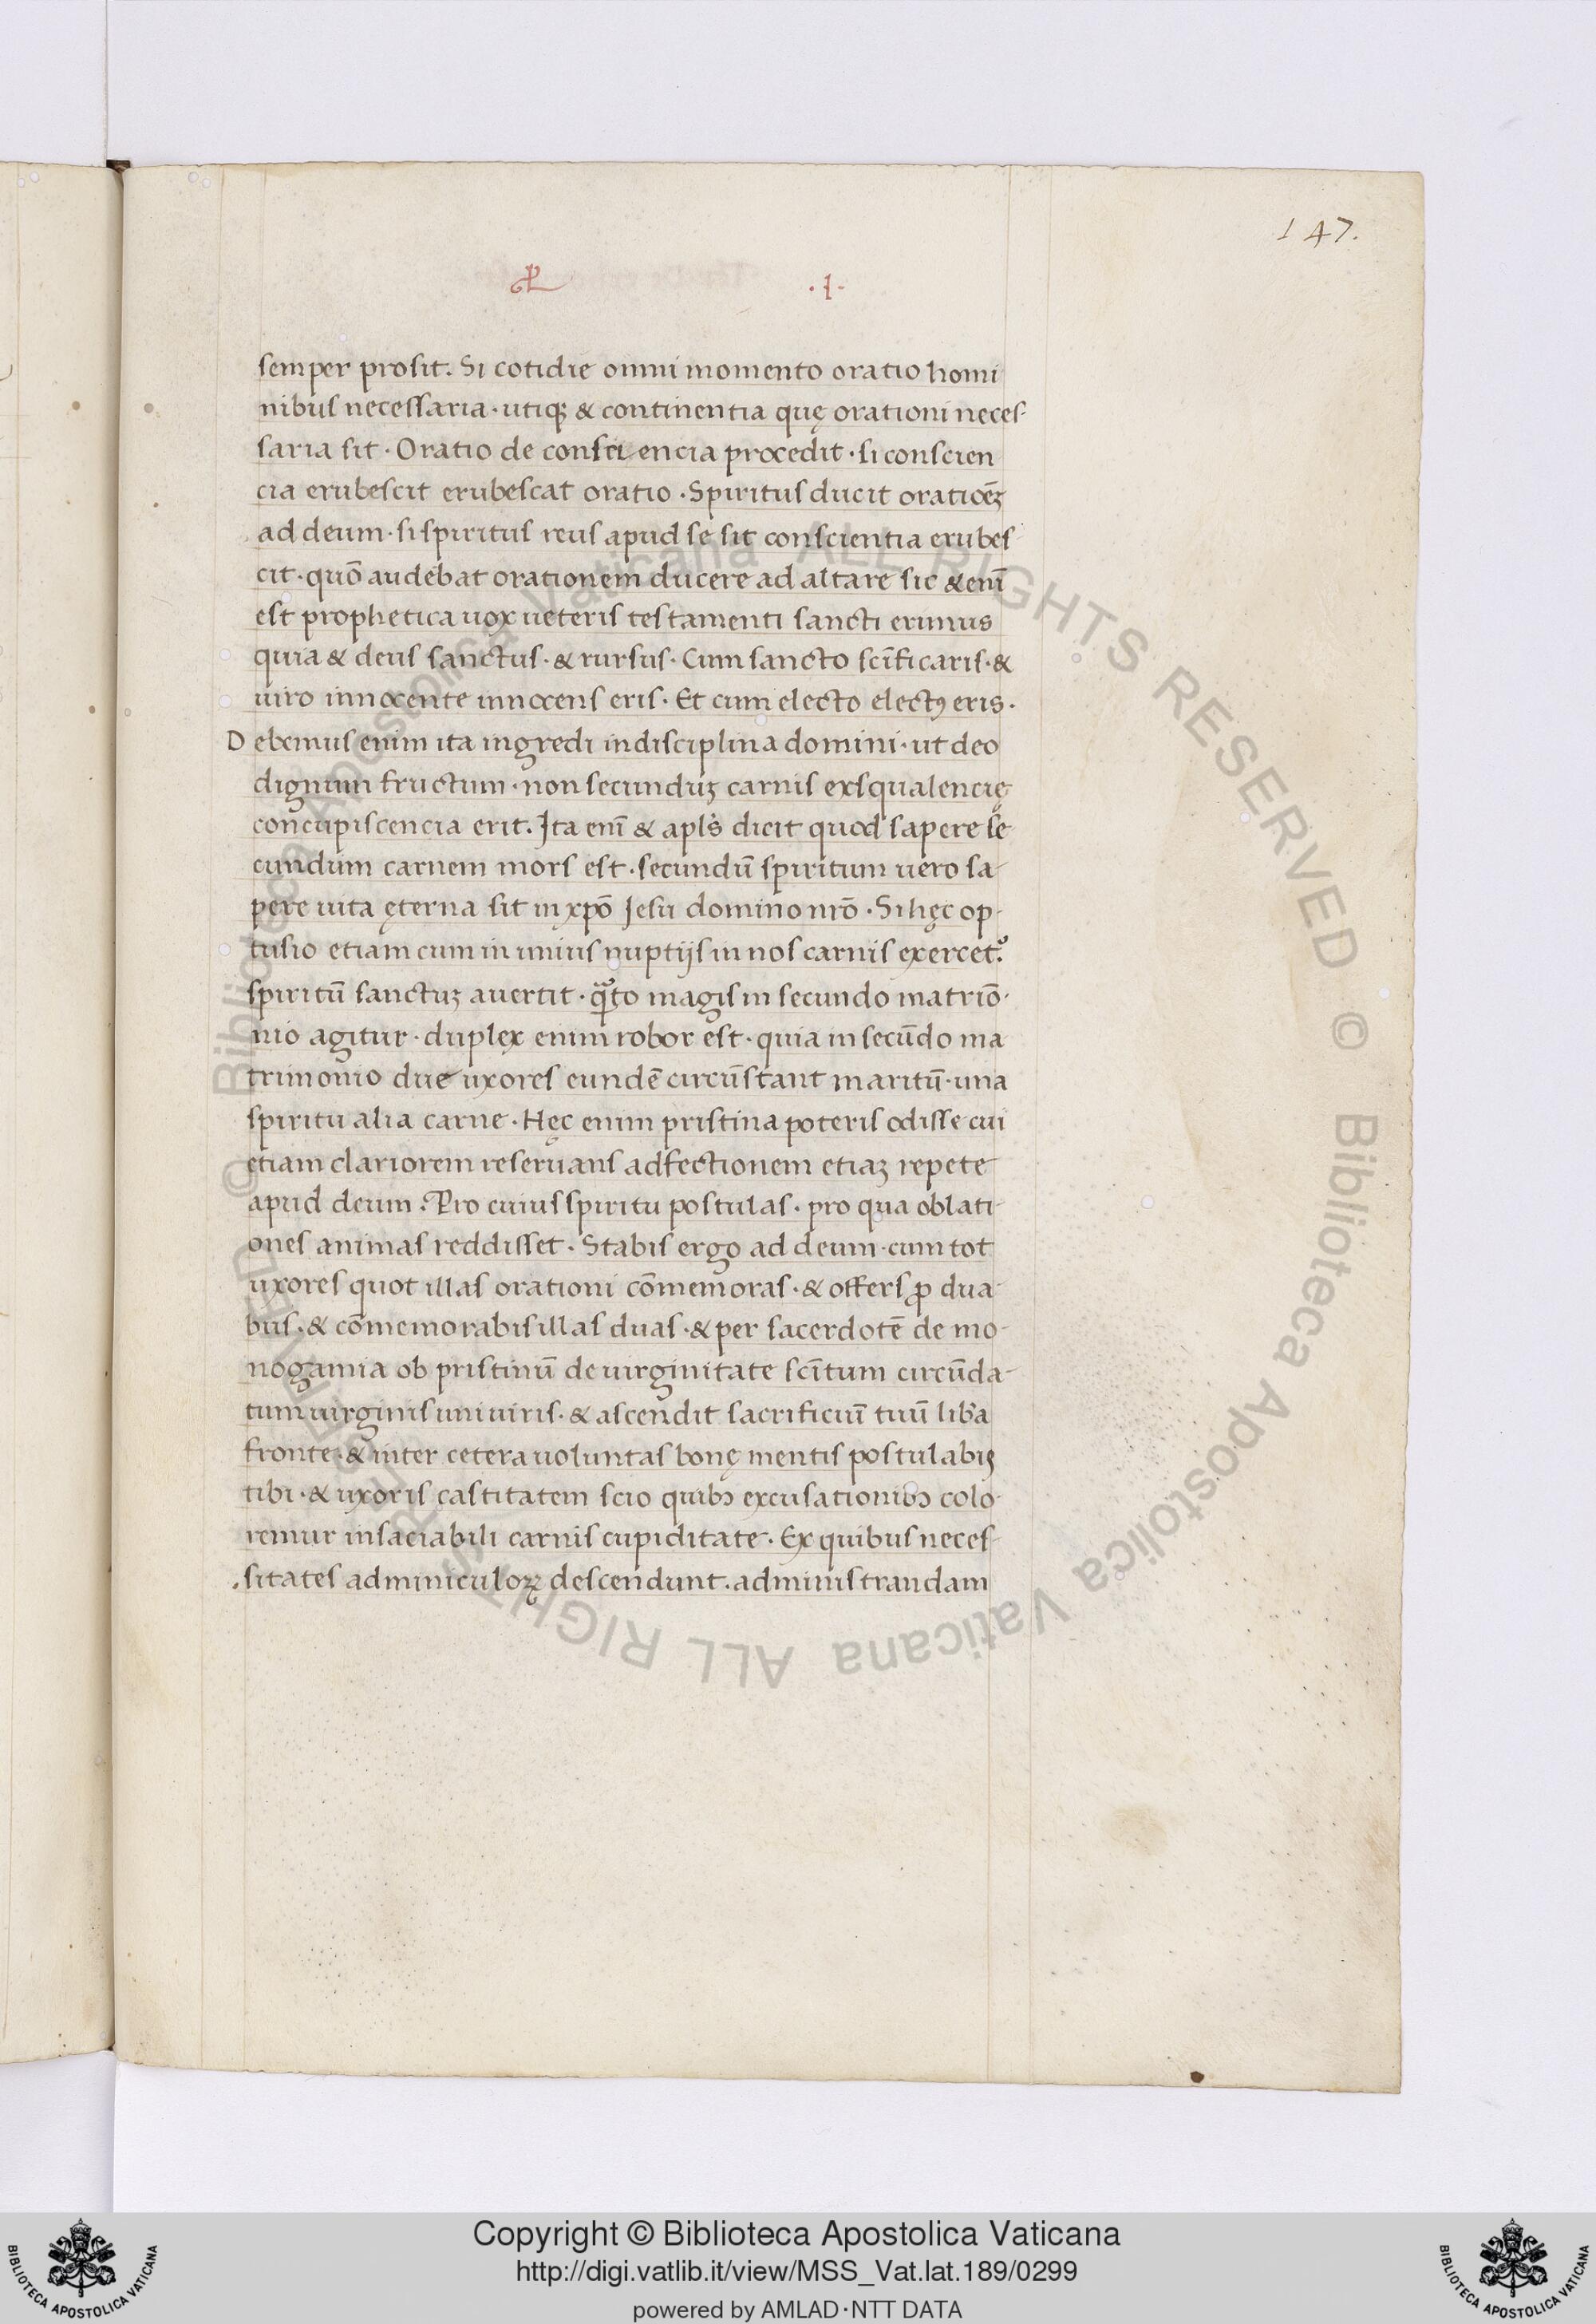 147.
PL .I.
semper prosit. Si cotidie omni momento oratio homi
nibus necessaria · utiqꝫ & continentia quę orationi neces-
saria sit · Oratio de consci encia procedit · si conscien
cia erubescit erubescat oratio · Spiritus ducit oratiōeꝫ
ad deum · si spiritus reus apud se sit conscientia erubes
cit · quō audebat orationem ducere ad altare sic & enī
est prophetica uox ueteris testamenti sancti erimus
quia & deus sanctus · & rursus · Cum sancto scīficaris · &
uiro innocente innocens eris · Et cum electo electꝯ eris ·
Debemus enim ita ingredi in disciplina domini · ut deo
dignum fructum · non secunduꝫ carnis exsqualencię
concupiscencia erit. Ita enī & apls̄ dicit quod sapere se
cundum carnem mors est · secundū spiritum uero sa-
pere uita ęterna sit in xp̄o Iesu domino nr̄o · Si hęc op-
tusio etiam cum in unius nuptijs in nos carnis exercet᷑
spiritū sanctuꝫ auertit · quāto magis in secundo matriō-
nio agitur · duplex enim robor est · quia in secūdo ma
trimonio due uxores eundē circūstant maritū · una
spiritu alia carne · Hęc enim pristina poteris odisse cui
etiam clariorem reseruans adfectionem etiaꝫ repete
apud deum. Pro cuius spiritu postulas · pro qua oblati-
ones animas reddisset · Stabis ergo ad deum · cum tot
uxores quot illas orationi cōmemoras · & offers ꝓ dua-
bus · & cōmemorabis illas duas · & per sacerdotē de mo-
nogamia ob pristinū de uirginitate scītum circūda-
tum uirginis uniuiris · & ascendit sacrificiū tuū lib̄a
fronte · & inter cetera uoluntas bonę mentis postulabis
tibi · & uxoris castitatem scio quibꝫ excusationibꝫ colo-
remur insaciabili carnis cupiditate · Ex quibus neces-
sitates adminiculoꝝ descendunt. administrandam
© Biblioteca Apostolica Vaticana ALL RIGHTS RESERVED © Biblioteca Apostolica Vaticana ALL RIGHTS RESERVED
Copyright © Biblioteca Apostolica Vaticana
http://digi.vatlib.it/view/MSS_Vat.lat.189/0299
powered by AMLAD·NTT DATA
BIBLIOTECA APOSTOLICA VATICANA
BIBLIOTECA APOSTOLICA VATICANA